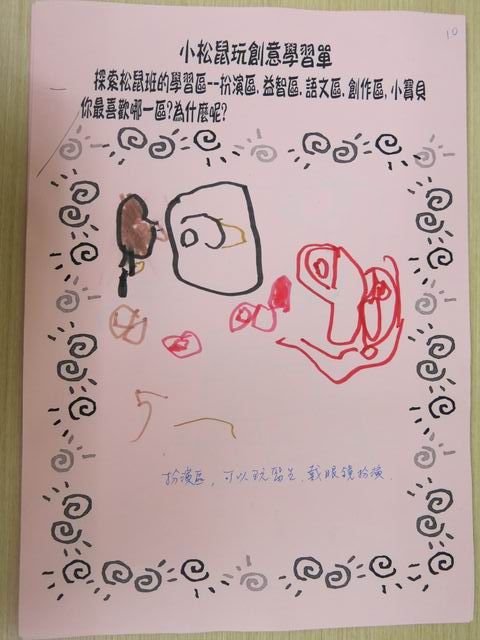 10
小松鼠玩創意學習單
探索松鼠班的學習區--扮演區,益智區,語文區,創作區,小寶貝
你最喜歡哪一區?為什麼呢?
5
扮演區,可以玩醫生、戴眼鏡扮演.